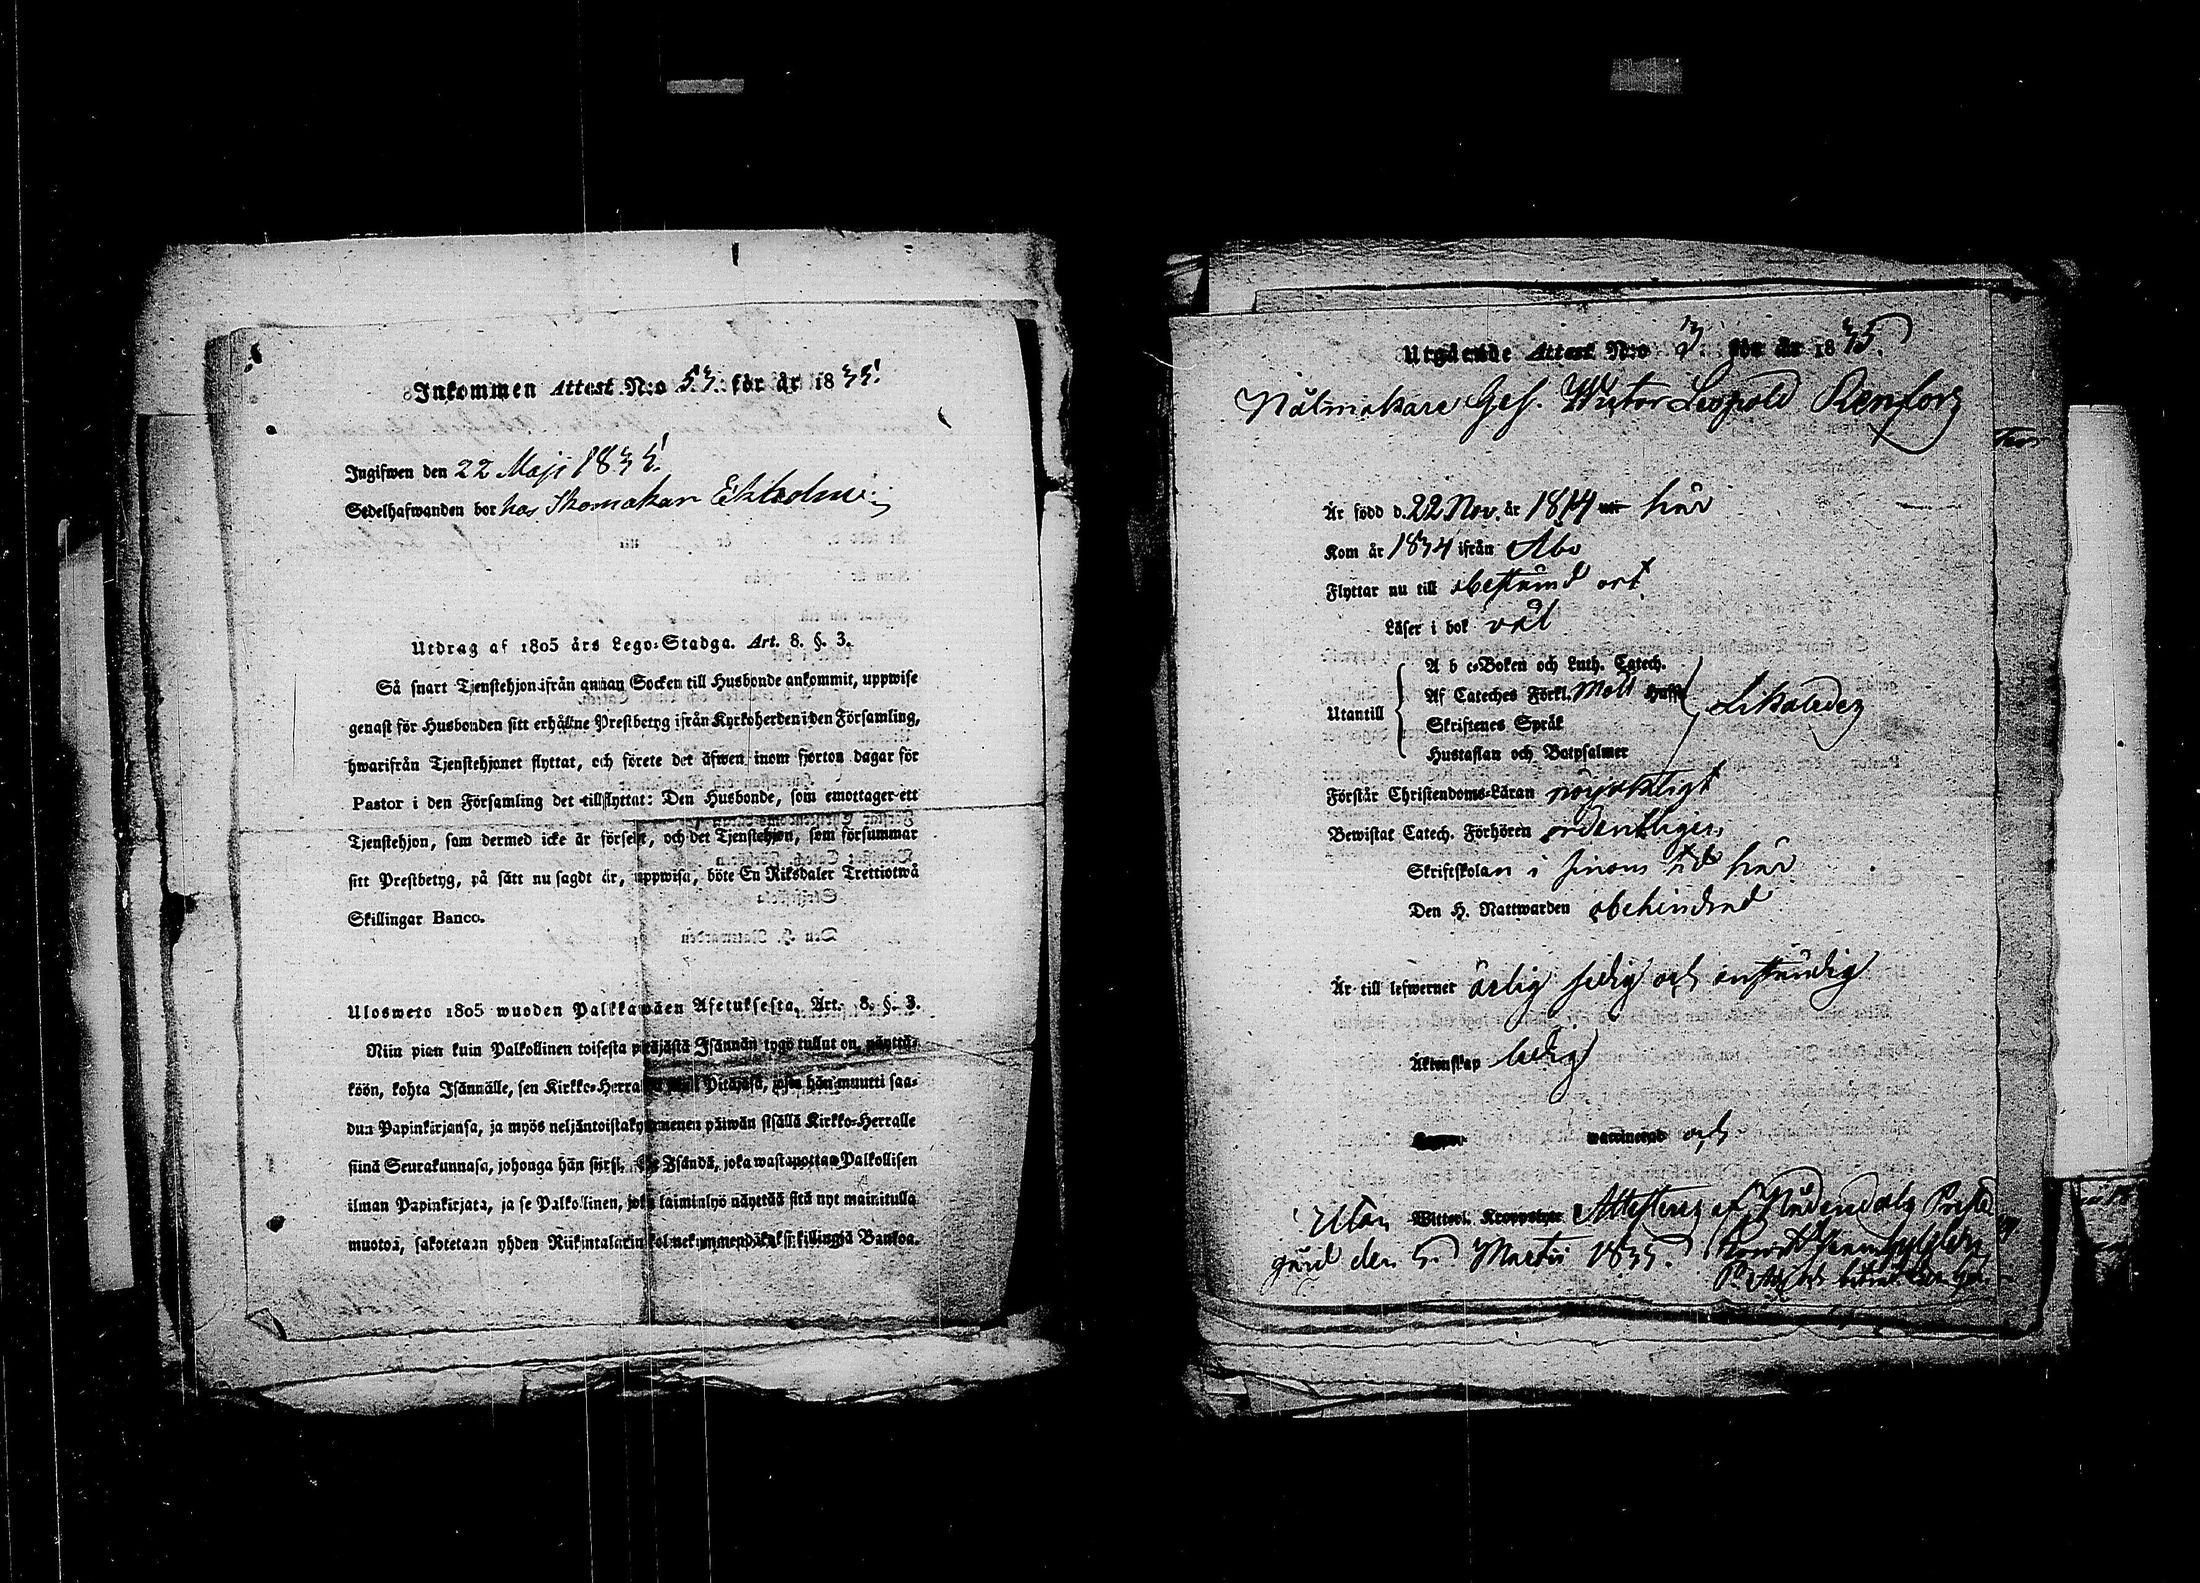 Inkommen Attest N:o 53. för år 1835.
Ingifwen den 22 Maji 1835.
Sedelhafwanden bor hos Skomakar Ekholm.
Utdrag af 1805 års Lego-Stadga. Art. 8. §. 3.
Så snart Tjenstehjon ifrån annan Socken till Husbonde ankommit, uppwise
genast för Husbonden sitt erhållne Prestbetyg ifrån Kyrkoherden i den Församling,
hwarifrån Tjenstehjonet flyttat, och förete det äfwen inom fjorton dagar för
Pastor i den Församling det tillflyttat: Den Husbonde, som emottager ett
Tjenstehjon, som dermed icke är försedt, och det Tjenstehjon, som försummar
sitt Prestbetyg, på sätt nu sagdt är, uppwisa, böte En Riksdaler Trettiotwå
Skillingar Banco.
Ulosweto 1805 wuoden Palkkawäen Asetuksesta, Art. 8. §. 3.
Niin pian kuin Palkollinen toisesta pitäjästä Isännän tygö tullut on, näyttä-
köön, kohta Isännälle, sen Kirkko-Herralta siinä Pitäjäsä, josta hän muutti saa-
dun Papinkirjansa, ja myös neljäntoistakymmenen päiwän sisällä Kirkko-Herralle
siinä Seurakunnasa, johonga hän siirsi. Se Isändä, joka wastanottaa Palkollisen
ilman Papinkirjata, ja se Palkollinen, joka laiminlyö näyttää sitä nyt mainitulla
muotoa, sakotetaan yhden Riikintalarin kolmekymmendäkaksi killingiä Bankoa.
Utgående Attest N:o 3. för år 1835.
Nålmakare Ges. Wictor Leopold Renfors
Är född d. 22 Nov. år 1814 uti här
Kom år 1834 ifrån Åbo
Flyttar nu till obestämd ort
Läser i bok väl
A b c-Boken och Luth. Catech.
Af Cateches Förkl. Möll
Utantill Likaledes
Skriftenes Språk
Hustaflan och Botpsalmer
Förstår Christendoms-Läran nöjaktigt
Bewistat Catech. Förhören ordentligen
Skriftskolan i sinom tid här
Den H. Nattwarden obehindrad
Är till lefwernet ärlig sedig och anständig
Äktenskap ledig
waccinerad och
Utan Witterl. Kroppslyte Attesteras af Nådendals Prest
gård den 5. Martii 1835.